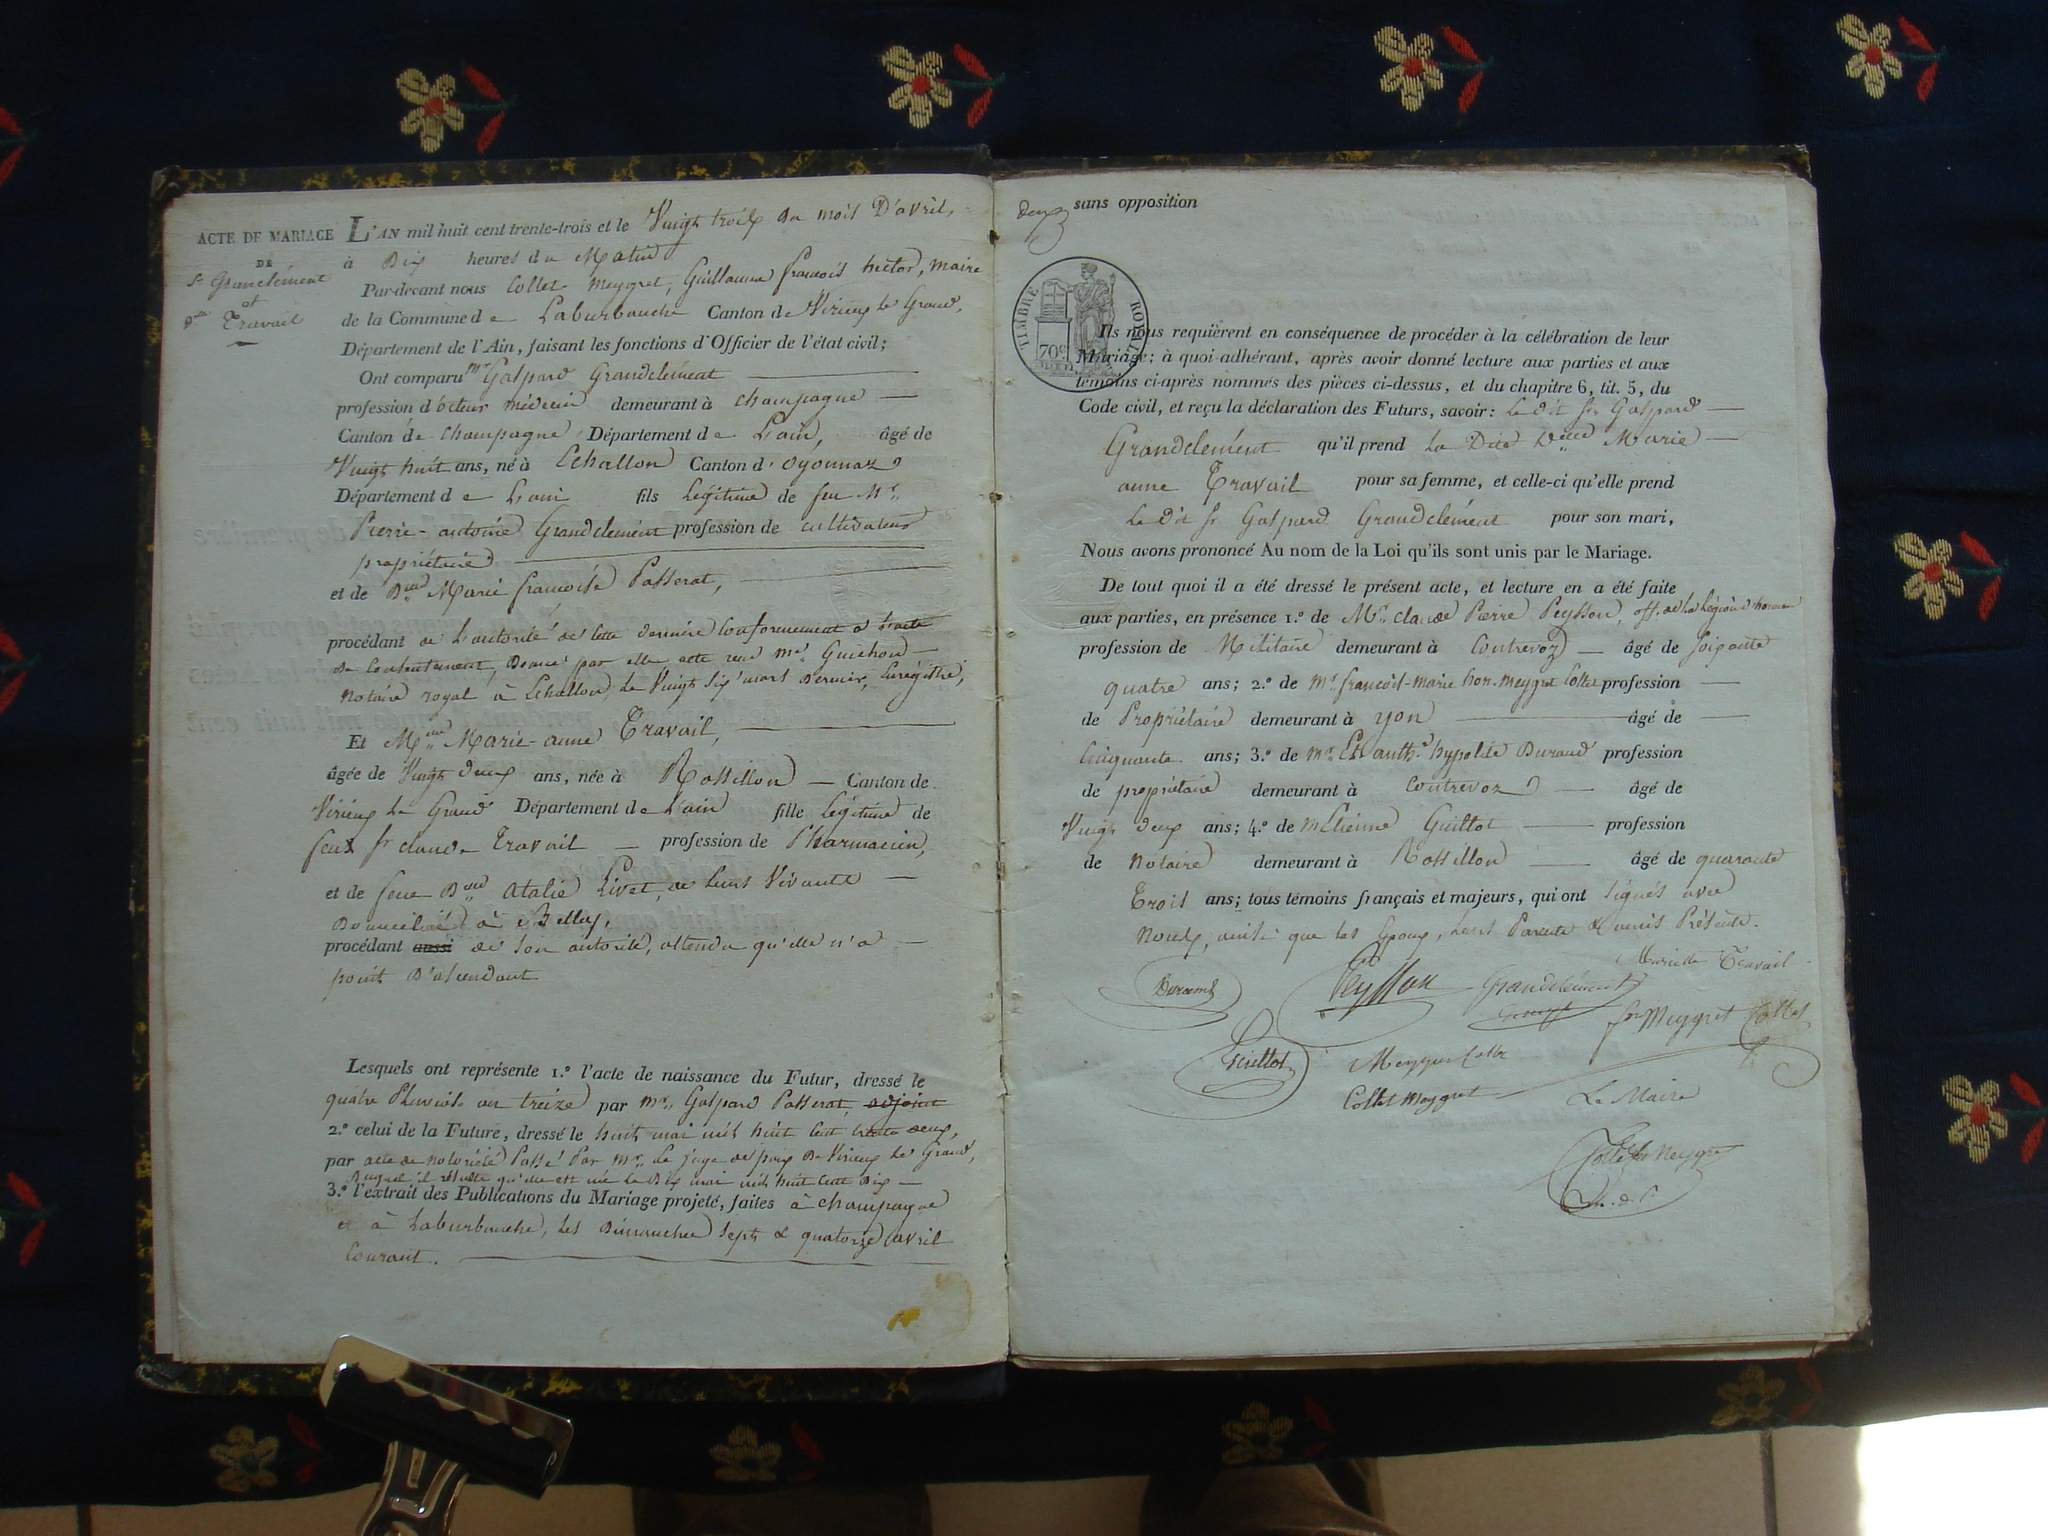 ACTE DE MARIAGE
DE
Sr Granclément
et
Dlle Travail
L'AN mil huit cent trente-trois et le Vingt trois du mois D'avril,
à Dix heures du Matin
Par-devant nous Collet Meygret, Guillaume françois hector, maire
de la Commune de Laburbanche Canton de Virieux le Grand,
Département de l'Ain, faisant les fonctions d'Officier de l'état civil;
Ont comparu Mr Gaspard Grandclément
profession docteur médecin demeurant à champagne
Canton de champagne Département de L'ain, âgé de
Vingt huit ans, né à Echallon Canton d'oyonnaz
Département de L'ain fils légitime de feu Mr
Pierre-antoine Grandclément profession de cultivateur
propriétaire
et de Dme Marie françoise Passerat,
procédant de L'autorité de cette dernière Conformément à L'acte
de Consentement, Donné par elle, acte reçu me Guichon
Notaire royal à Echallon, le Vingt six mars Dernier, Enrégistré,
Et Melle Marie-anne Travail,
âgée de Vingt deux ans, née à Rossillon Canton de
Virieux Le Grand Département de L'ain fille légitime de
feux Sr claude Travail profession de Pharmacien,
et de feue Dme atalie Livet, de leurs Vivants
Domiciliés à Belley,
procédant aussi de son autorité, attendu qu'elle n'a
point D'ascendant
Lesquels ont représenté 1.º l'acte de naissance du Futur, dressé le
quatre Pluviose an treize par mr Gaspard Passerat, adjoint
2.º celui de la Future, dressé le huit mai mil huit cent trente deux,
par acte de notoriété Passé Par Mr Le juge de paix de Virieux le Grand,
Duquel il résulte qu'elle est née le Dix mai mil huit cent Dix
3.º l'extrait des Publications du Mariage projeté, faites à champagne
et à Laburbanche, les Dimanches Sept & quatorze avril
Courant.
Deux
sans opposition
TIMBRE ROYAL
70c
Ils nous requièrent en conséquence de procéder à la célébration de leur
Mariage; à quoi adhérant, après avoir donné lecture aux parties et aux
témoins ci-après nommés des pièces ci-dessus, et du chapitre 6, tit. 5, du
Code civil, et reçu la déclaration des Futurs, savoir: Le Dit Sr Gaspard
Grandclément qu'il prend La Dite Delle Marie
anne Travail pour sa femme, et celle-ci qu'elle prend
Le Dit Sr Gaspard Grandclément pour son mari,
Nous avons prononcé Au nom de la Loi qu'ils sont unis par le Mariage.
De tout quoi il a été dressé le présent acte, et lecture en a été faite
aux parties, en présence 1.º de Mr claude Pierre Peysson, off. de la Légion d'honneur
profession de Militaire demeurant à Contrevoz âgé de soixante
quatre ans; 2.º de Mr françois-marie hon. Meygret Collet profession
de Propriétaire demeurant à yon âgé de
Cinquante ans; 3.º de Mr anth. hypolite Durand profession
de propriétaire demeurant à Contrevoz âgé de
Vingt deux ans; 4.º de M Etienne Guillot profession
de Notaire demeurant à Rossillon âgé de quarante
Trois ans; tous témoins français et majeurs, qui ont signés avec
Nous, ainsi que les Epoux, leurs Parents & amis Présents.
Mariette Travail
Durand Peysson Grandclément
fois Meygret Collet
Guillot Meygret Collet
Collet Meygret Le Maire
Collet Meygret